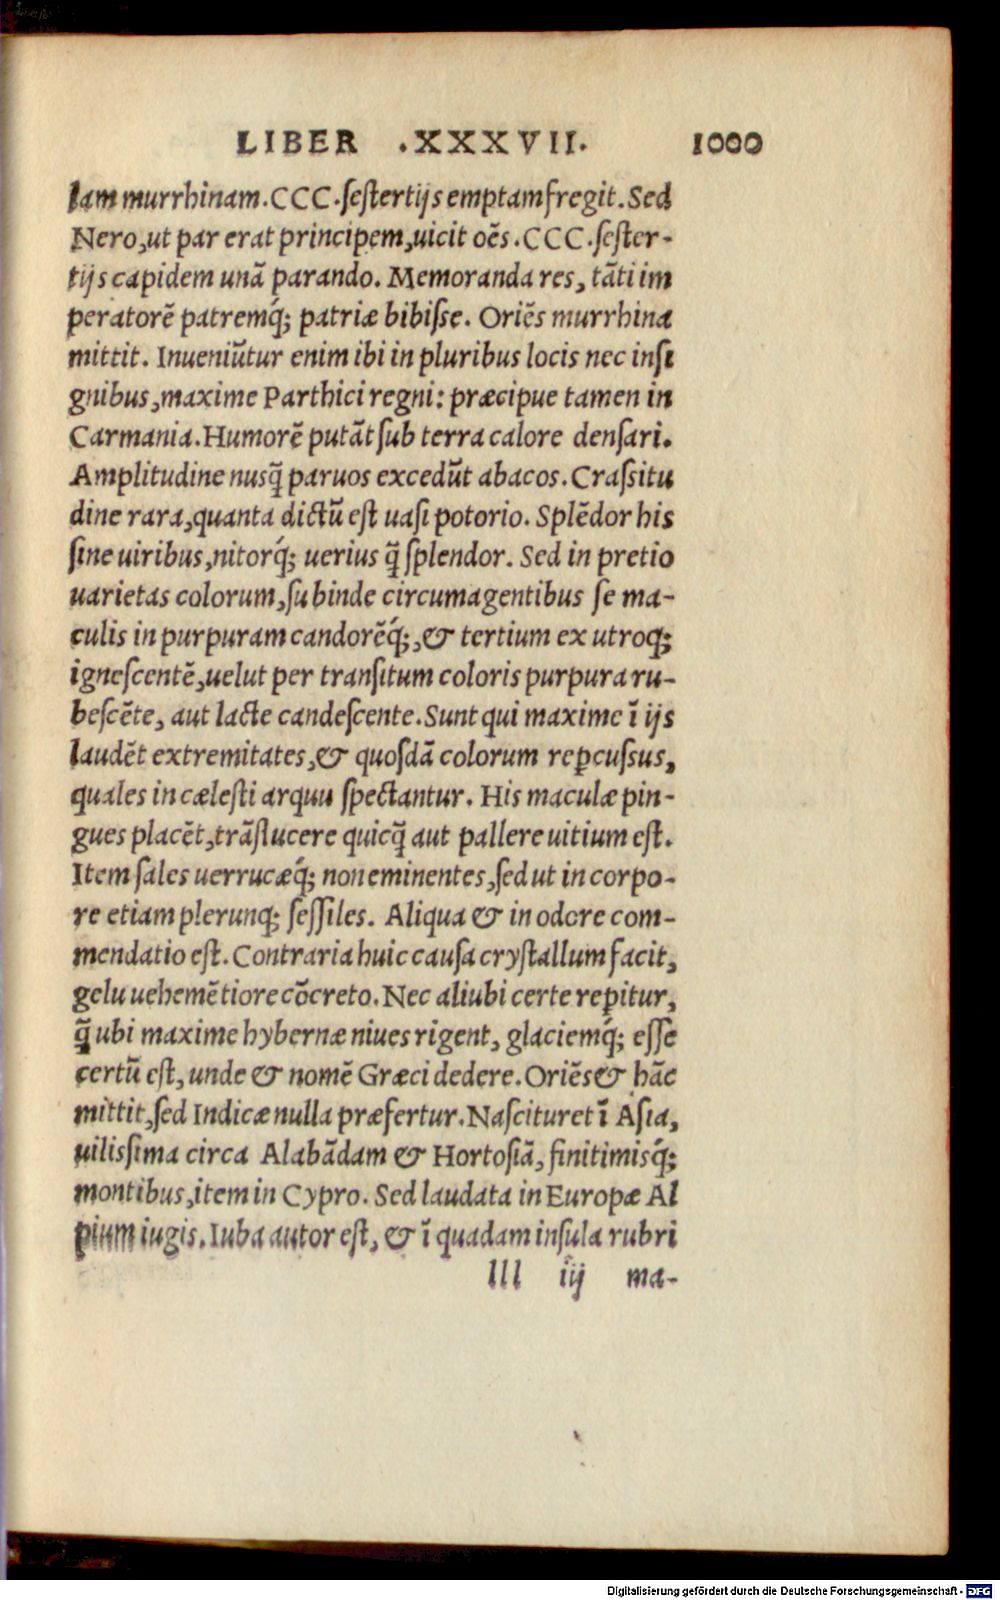 LIBER .XXXVII. 1000
lam murrhinam.CCC.ſeſtertijs emptam fregit.Sed
Nero,ut par erat principem,uicit oẽs.CCC.ſeſter-
tijs capidem unã parando. Memoranda res, tãti im
peratorẽ patremq́; patriæ bibiſſe. Oriẽs murrhina
mittit. Inueniũtur enim ibi in pluribus locis nec inſi
gnibus,maxime Parthici regni: præcipue tamen in
Carmania.Humorẽ putãt ſub terra calore denſari.
Amplitudine nusq̃ paruos excedũt abacos.Craſſitu
dine rara,quanta dictũ eſt uaſi potorio. Splẽdor his
ſine uiribus,nitorq́; uerius q̃ ſplendor. Sed in pretio
uarietas colorum,ſubinde circumagentibus ſe ma-
culis in purpuram candorẽq́;,& tertium ex utroq;
igneſcentẽ,uelut per tranſitum coloris purpura ru-
beſcẽte, aut lacte candeſcente.Sunt qui maxime ĩ ijs
laudẽt extremitates,& quoſdã colorum reꝑcuſſus,
quales in cæleſti arquu ſpectantur. His maculæ pin-
gues placẽt,trãſlucere quicq̃ aut pallere uitium eſt.
Item ſales uerrucæq́; non eminentes,ſed ut in corpo-
re etiam plerunq; ſeſſiles. Aliqua & in odore com-
mendatio eſt.Contraria huic cauſa cryſtallum facit,
gelu uehemẽtiore cõcreto.Nec aliubi certe reꝑitur,
q̃ ubi maxime hybernæ niues rigent, glaciemq́; eſſe
certũ eſt, unde & nomẽ Græci dedere.Oriẽs & hãc
mittit,ſed Indicæ nulla præfertur.Naſcitur et ĩ Aſia,
uiliſſima circa Alabãdam & Hortoſiã, finitimisq́;
montibus,item in Cypro. Sed laudata in Europæ Al
pium iugis.Iuba autor eſt, & ĩ quadam inſula rubri
lll iij ma-
Digitalisierung gefördert durch die Deutsche Forschungsgemeinschaft - DFG